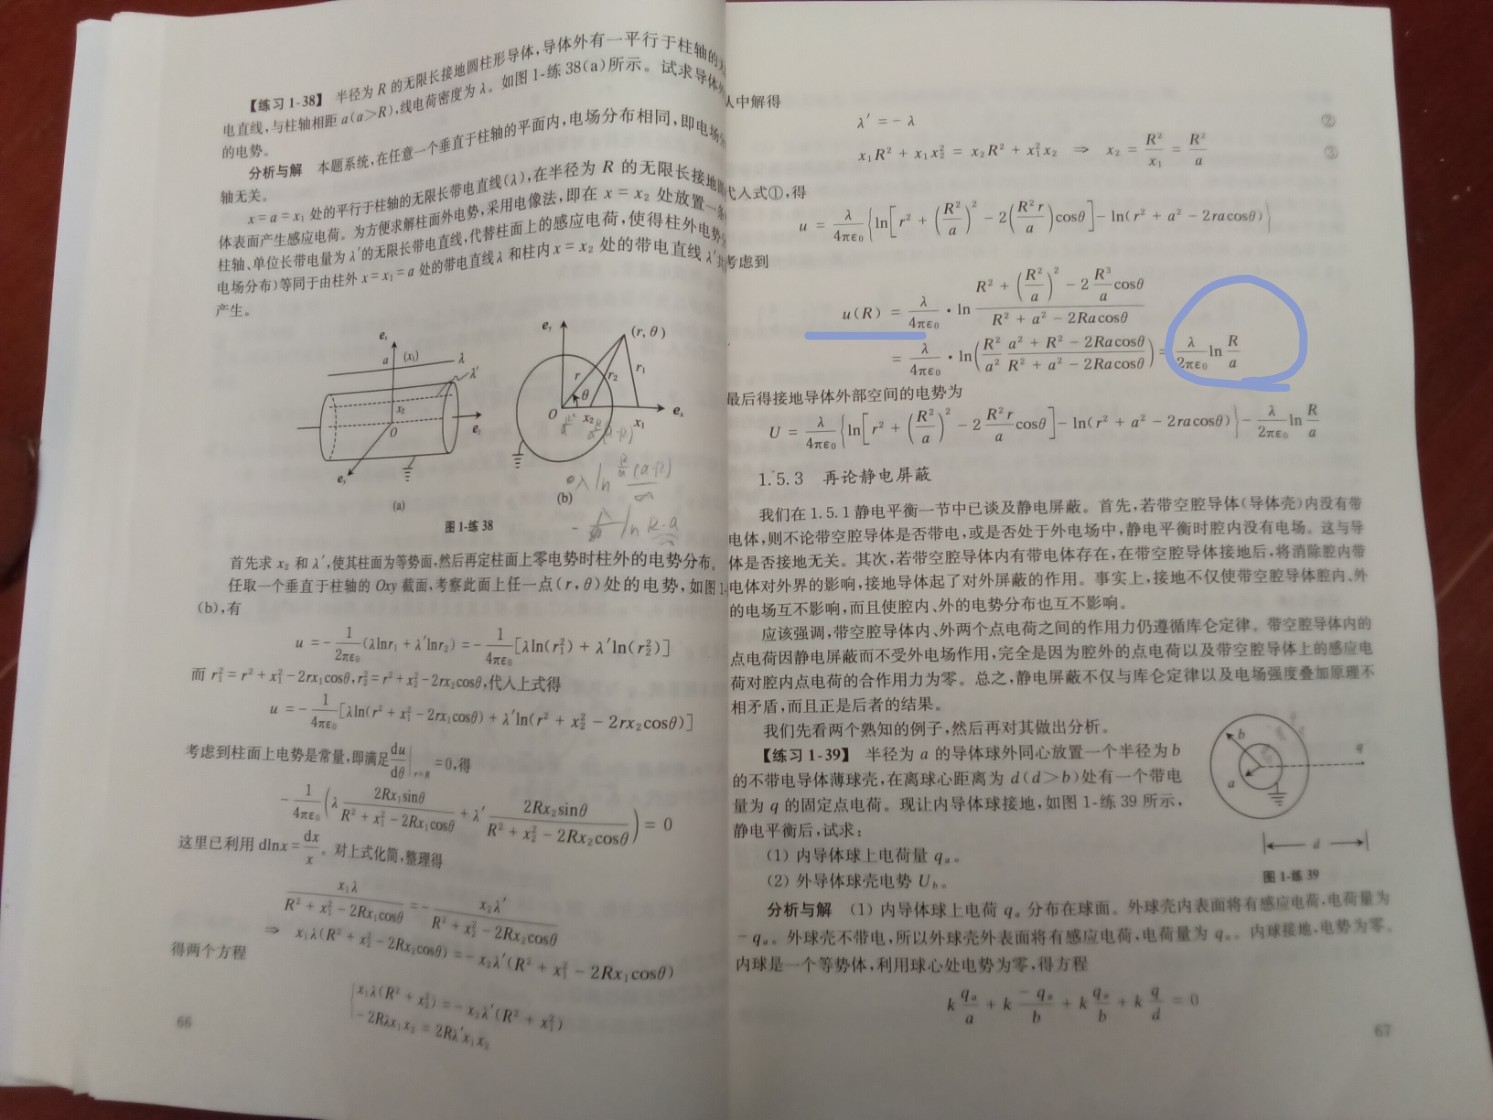 【练习 1-38】 半径为 R 的无限长接地圆柱形导体,导体外有一平行于柱轴的
电直线,与柱轴相距 a(a>R),线电荷密度为 λ。如图 1-练 38(a)所示。试求导体
的电势。
分析与解 本题系统,在任意一个垂直于柱轴的平面内,电场分布相同,即电场
轴无关。
x=a=x₁ 处的平行于柱轴的无限长带电直线(λ),在半径为 R 的无限长接地
体表面产生感应电荷。为方便求解柱面外电势,采用电像法,即在 x=x₂ 处放置一条
柱轴、单位长带电量为 λ′的无限长带电直线,代替柱面上的感应电荷,使得柱外电势
电场分布)等同于由柱外 x=x₁=a 处的带电直线 λ 和柱内 x=x₂ 处的带电直线 λ′
产生。
eₓ
a
(x₁)
λ
λ′
x₂
O
(a)
(r, θ)
r
r₂
r₁
θ
O
x₂
x₁
eₓ
(b)
图 1-练 38
首先求 x₂ 和 λ′,使其柱面为等势面,然后再定柱面上零电势时柱外的电势分布。
任取一个垂直于柱轴的 Oxy 截面,考察此面上任一点(r,θ)处的电势,如图 1-
(b),有
u = −1/(2πε₀)(λlnr₁ + λ′lnr₂) = −1/(4πε₀)[λln(r₁²) + λ′ln(r₂²)]
而 r₁²=r²+x₁²−2rx₁cosθ,r₂²=r²+x₂²−2rx₂cosθ,代入上式得
u = −1/(4πε₀)[λln(r² + x₁² − 2rx₁cosθ) + λ′ln(r² + x₂² − 2rx₂cosθ)]
考虑到柱面上电势是常量,即满足 du/dθ|r=R =0,得
−1/(4πε₀)(λ 2Rx₁sinθ/(R² + x₁² − 2Rx₁cosθ) + λ′ 2Rx₂sinθ/(R² + x₂² − 2Rx₂cosθ)) = 0
这里已利用 dlnx = dx/x。对上式化简,整理得
x₁λ/(R² + x₁² − 2Rx₁cosθ) = − x₂λ′/(R² + x₂² − 2Rx₂cosθ)
⇒ x₁λ(R² + x₂² − 2Rx₂cosθ) = − x₂λ′(R² + x₁² − 2Rx₁cosθ)
得两个方程
x₁λ(R² + x₂²) = − x₂λ′(R² + x₁²)
− 2Rλx₁x₂ = 2Rλ′x₁x₂
66
中解得
λ′ = − λ ②
x₁R² + x₁x₂² = x₂R² + x₁²x₂ ⇒ x₂ = R²/x₁ = R²/a ③
代入式①,得
u = λ/(4πε₀){ln[r² + (R²/a)² − 2(R²r/a)cosθ] − ln(r² + a² − 2racosθ)}
考虑到
u(R) = λ/(4πε₀) · ln (R² + (R²/a)² − 2 R³/a cosθ)/(R² + a² − 2Racosθ)
= λ/(4πε₀) · ln(R²/a² (a² + R² − 2Racosθ)/(R² + a² − 2Racosθ)) = λ/(2πε₀) ln R/a
最后得接地导体外部空间的电势为
U = λ/(4πε₀){ln[r² + (R²/a)² − 2 R²r/a cosθ] − ln(r² + a² − 2racosθ)} − λ/(2πε₀) ln R/a
1.5.3 再论静电屏蔽
我们在 1.5.1 静电平衡一节中已谈及静电屏蔽。首先,若带空腔导体(导体壳)内没有带
电体,则不论带空腔导体是否带电,或是否处于外电场中,静电平衡时腔内没有电场。这与导
体是否接地无关。其次,若带空腔导体内有带电体存在,在带空腔导体接地后,将消除腔内带
电体对外界的影响,接地导体起了对外屏蔽的作用。事实上,接地不仅使带空腔导体腔内、外
的电场互不影响,而且使腔内、外的电势分布也互不影响。
应该强调,带空腔导体内、外两个点电荷之间的作用力仍遵循库仑定律。带空腔导体内的
点电荷因静电屏蔽而不受外电场作用,完全是因为腔外的点电荷以及带空腔导体上的感应电
荷对腔内点电荷的合作用力为零。总之,静电屏蔽不仅与库仑定律以及电场强度叠加原理不
相矛盾,而且正是后者的结果。
我们先看两个熟知的例子,然后再对其做出分析。
【练习 1-39】 半径为 a 的导体球外同心放置一个半径为 b
的不带电导体薄球壳,在离球心距离为 d(d>b)处有一个带电
量为 q 的固定点电荷。现让内导体球接地,如图 1-练 39 所示,
静电平衡后,试求:
(1) 内导体球上电荷量 qₐ。
(2) 外导体球壳电势 U_b。
b
a
q
d
图 1-练 39
分析与解 (1) 内导体球上电荷 qₐ 分布在球面。外球壳内表面将有感应电荷,电荷量为
−qₐ。外球壳不带电,所以外球壳外表面将有感应电荷,电荷量为 qₐ。内球接地,电势为零。
内球是一个等势体,利用球心处电势为零,得方程
k qₐ/a + k −qₐ/b + k qₐ/b + k q/d = 0
67